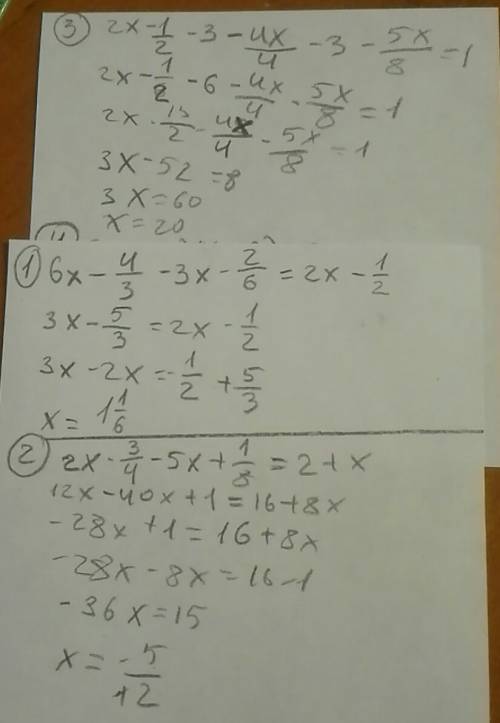 ③ 2x - 1/2 - 3 - 4x/4 - 3 - 5x/8 = 1
2x - 1/2 - 6 - 4x/4 - 5x/8 = 1
2x - 13/2 - 4x/4 - 5x/8 = 1
3x - 52 = 8
3x = 60
x = 20
① 6x - 4/3 - 3x - 2/6 = 2x - 1/2
3x - 5/3 = 2x - 1/2
3x - 2x = -1/2 + 5/3
x = 1 1/6
② 2x · 3/4 - 5x + 1/8 = 2 + x
12x - 40x + 1 = 16 + 8x
-28x + 1 = 16 + 8x
-28x - 8x = 16 - 1
-36x = 15
x = -5/12